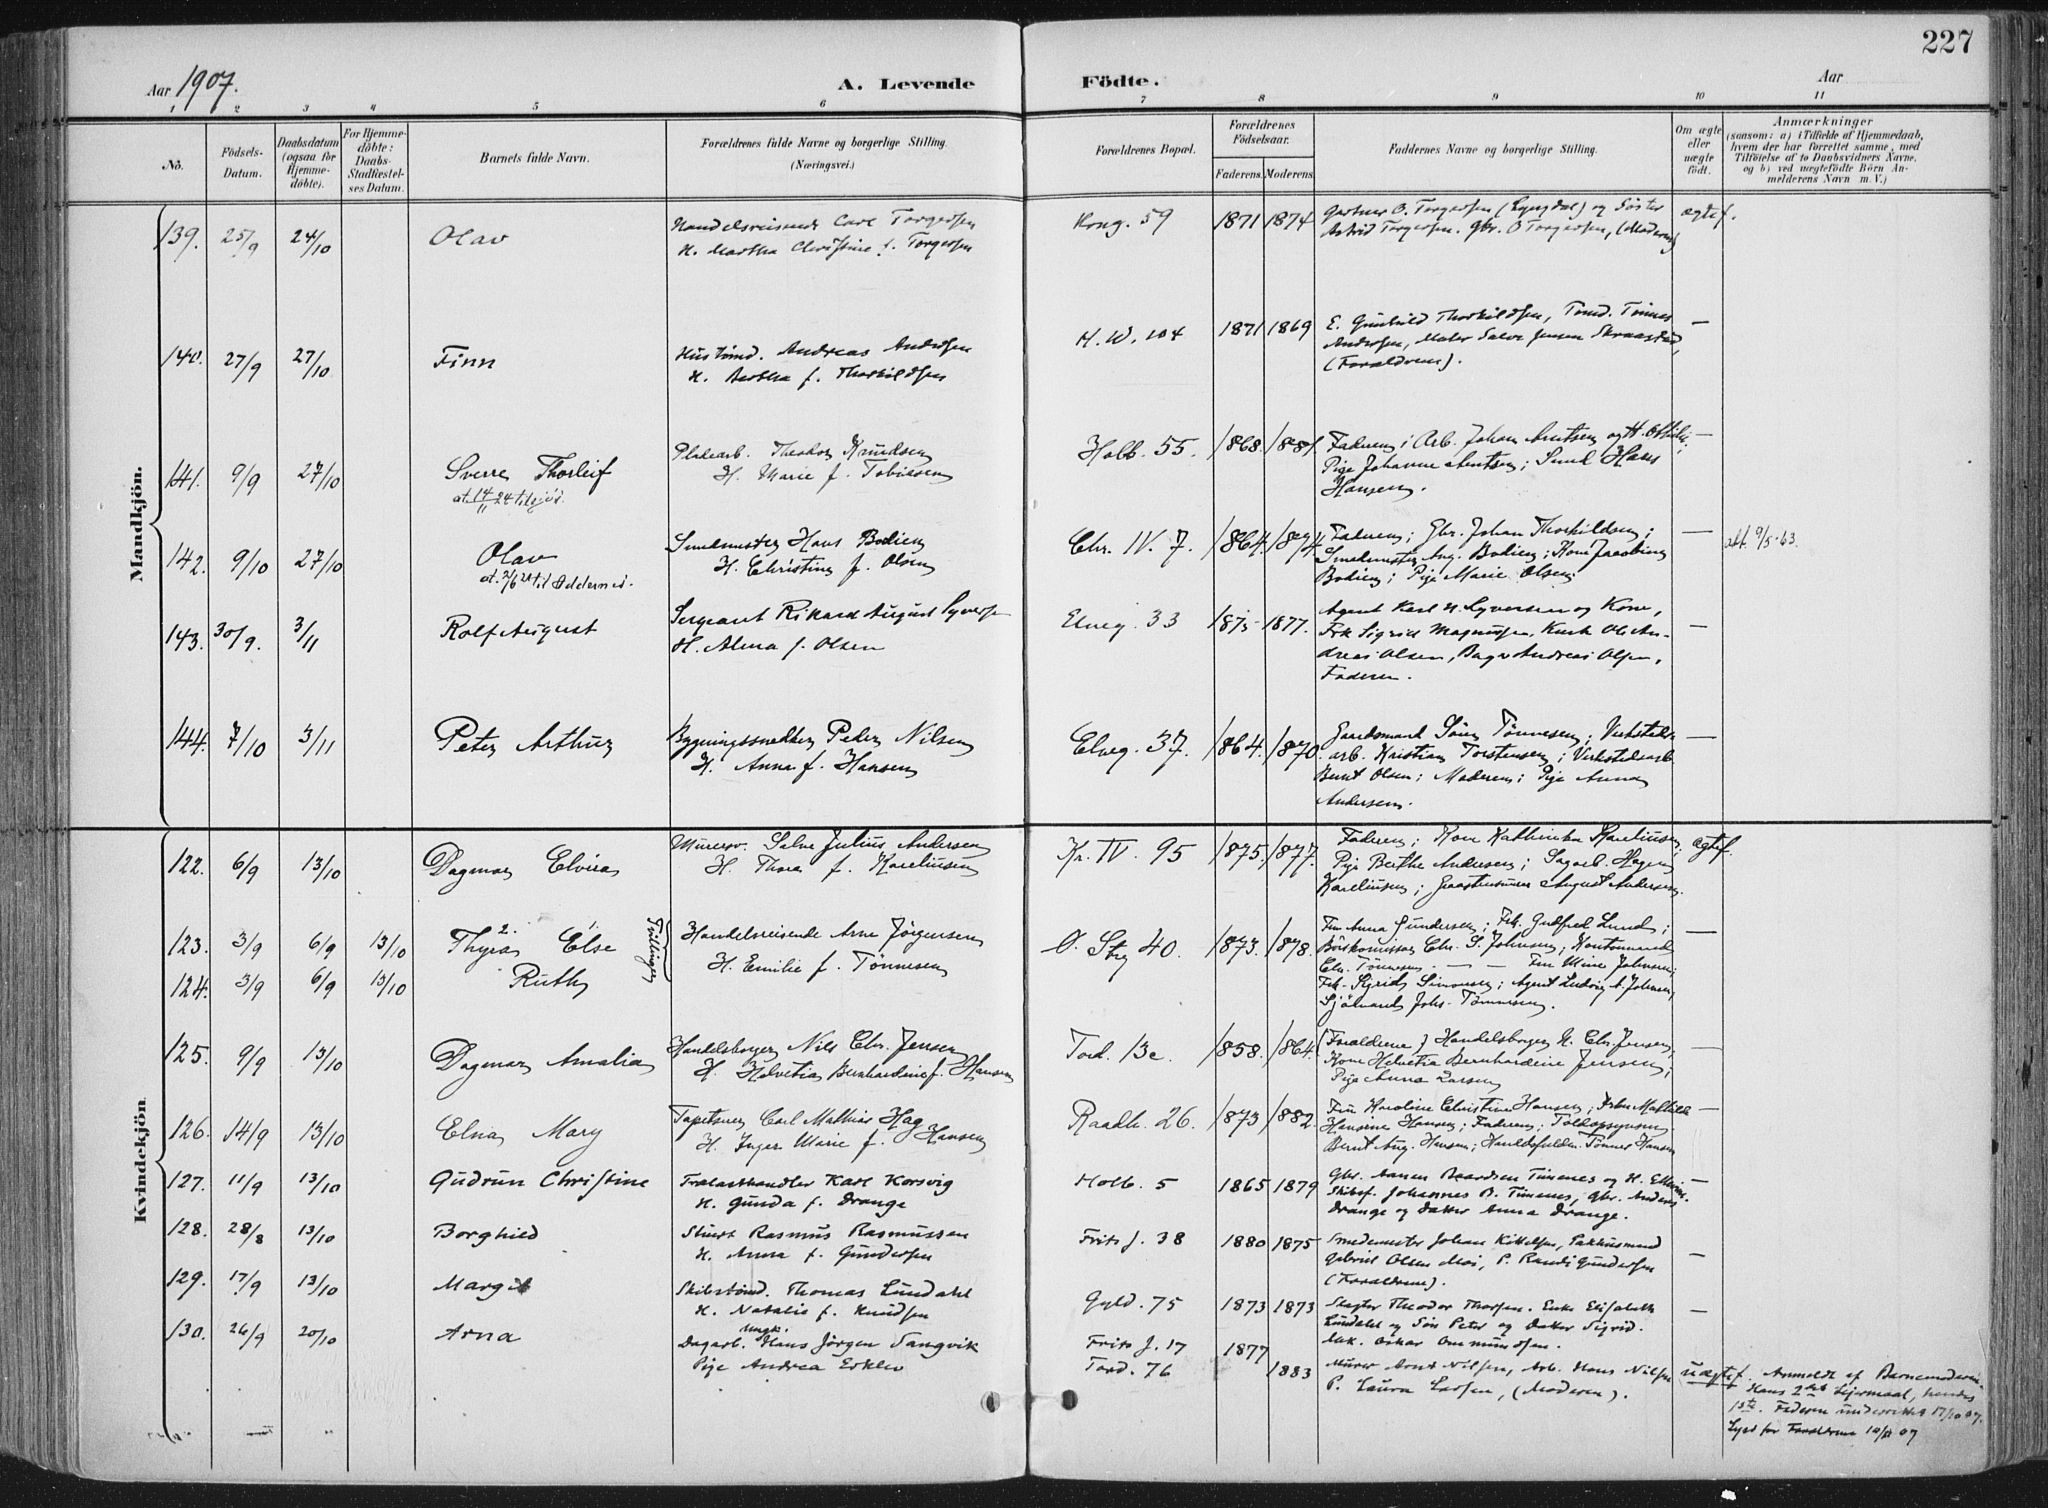 227
Aar 1907.
A. Levende Födte.
Aar
1 2 3 4 5 6 7 8 9 10 11
No.
Födsels-Datum.
Daabsdatum (ogsaa for Hjemmedöbte).
For Hjemmedöbte: Daabs-Stadfæstelses Datum.
Barnets fulde Navn.
Forældrenes fulde Navne og borgerlige Stilling. (Næringsvei.)
Forældrenes Bopæl.
Forældrenes Födselsaar.
Faderens. Moderens.
Faddernes Navne og borgerlige Stilling.
Om ægte eller uægte födt.
Anmærkninger
(saasom: a) i Tilfælde af Hjemmedaab,
hvem der har forrettet samme, med
Tilföielse af to Daabsvidners Navne,
og b) ved uægtefödte Börn Anmelderens Navn m. V.)
Mandkjön.
139. 25/9 24/10 Olav
Handelsreisende Carl Torgersen
H. Martha Christine f. Torgersen
Kong. 59 1871 1874
Gartner O. Torgersen (Lyngdal) og Söster
Astrid Torgersen. Gbr. O Torgersen, (Moderen)
ægtef.
140. 27/9 27/10 Finn
Andreas Andersen
H. Bertha f. Thorkildsen
H. W. 104 1871 1869
E. Gunhild Thorkildsen, Tömd. Tönnes
Andersen, Maler Salve Jensen Skraastad,
(Forældrene).
—
141. 9/9 27/10 Sverre Thorleif
Pladearb. Theodor Knudsen
H. Marie f. Tobiassen
Holb. 55. 1868. 1881.
Faderen; Arb. Johan Arntsen og H. Ottilie;
Pige Johanne Arntsen; Smed Hans
Hansen.
—
142. 9/10 27/10 Olav
at. 2/6 21 til Oddernes.
Smedmester Hans Bodien
H. Christine f. Olsen
Chr. IV. 7. 1864. 1874
Faderen; Gbr. Johan Thorkildsen;
Smedmester Aug. Bodien; Kone Jacobine
Bodien; Pige Marie Olsen;
—
att. 9/5-63.
143. 30/9. 3/11 Rolf August
Sergeant Rikard August Syversen
H. Alma f. Olsen
Elveg. 33 1875 1877.
Agent Karl H. Syversen og Kone,
Frk Sigrid Magnussen, Ole Andreas Olsen, Bager Andreas Olsen,
Faderen.
—
144. 7/10 3/11 Peter Arthur
Bygningssnedker Peder Nilsen
H. Anna f. Hansen
Elveg. 37. 1864. 1870.
Gaardsmand Sören Tönnesen; Verkstedsarb. Kristian Torstensen; Verkstedsarb.
Bernt Olsen; Moderen; Pige Anna
Andersen.
—
Kvindekjön
122. 6/9 13/10 Dagmar Elvira
Murersv. Salve Julius Andersen
H. Thora f. Kareliussen
Kr. IV. 95 1875. 1877.
Faderen; Kone Kathinka Kareliussen,
Pige Berthe Andersen; Sagarb. Hagen
Kareliusen; August Andersen.
ægtef.
123. 3/9 6/9 13/10 Thyra Else
2.
Tvillinger
Handelsreisende Arne Jörgensen
H. Emilie f. Tönnesen
Ö. Strg 40. 1873. 1878.
Fru Anna Gundersen; Frk. Gudfred Lund;
Börskomissær Chr. S. Johnsen; Kontormand
Chr. Tönnesen — — Fru Mina Johnsen;
Frk. Sigrid Simonsen; Agent Ludvig A. Johnsen,
Sjömand Johs. Tönnesen.
—
124. 3/9 6/9 13/10 Ruth
125. 9/9 13/10 Dagmar Amalia
Handelsborger Nils Chr. Jensen
H. Helvetia Bernhardine f. Hansen
Tord. 13c. 1858. 1864.
(Forældrene) Handelsborger N. Chr. Jensen,
Kone Helvetia Bernhardine Jensen;
Pige Anna Larsen
—
126. 14/9 13/10 Elna Mary
Tapetserer Carl Mathias Hag
H. Inger Marie f. Hansen
Raadh. 26. 1873 1882.
Fru Karoline Christine Hansen; Mathilde
Hansine Hansen; Faderen;
Bernt Aug. Hansen; Tönnes Hansen
—
127. 11/9 13/10 Gudrun Christine
Trælasthandler Karl Korsvig
H. Gunda f. Drange
Holb. 5 1865 1879
Gbr. Aanen Baardsen Timenes og H.
Skibsf. Johannes B. Timenes, Gbr. Anders
Drange og Datter Anna Drange.
—
128. 28/8 13/10 Borghild
Stuert Rasmus Rasmussen
H. Anna f. Gundersen
Frits J. 38 1880 1875
Smedemester Johan Kittelsen, Pakhusmand
Gabriel Olsen Moi, P. Randi Gundersen
(Forældrene).
—
129. 17/9 13/10 Margit
Skibstömd. Thomas Lundahl
H. Natalie f. Knudsen
Gyld. 75 1873 1873
Slagter Theodor Thorsen. Enke Elisabeth
Lundahl og Sön Peter og Datter Sigrid.
Oskar Ommundsen.
—
130. 26/9 20/10 Arna
Ungk.
Dagarb. Hans Jörgen Sangvik
Pige Andrea Erklev
Frits J. 17 1877
Tord. 76 1883
Murer Arnt Nilsen, Arb. Hans Nilsen
P. Laura Larsen, (Moderen).
uægtef. Anmeldt af Barnemoderen.
Hans 2det Leiermaal, hendes
1ste. Faderen underrettet 17/10 07.
Lyst for Forældrene 10/11 07